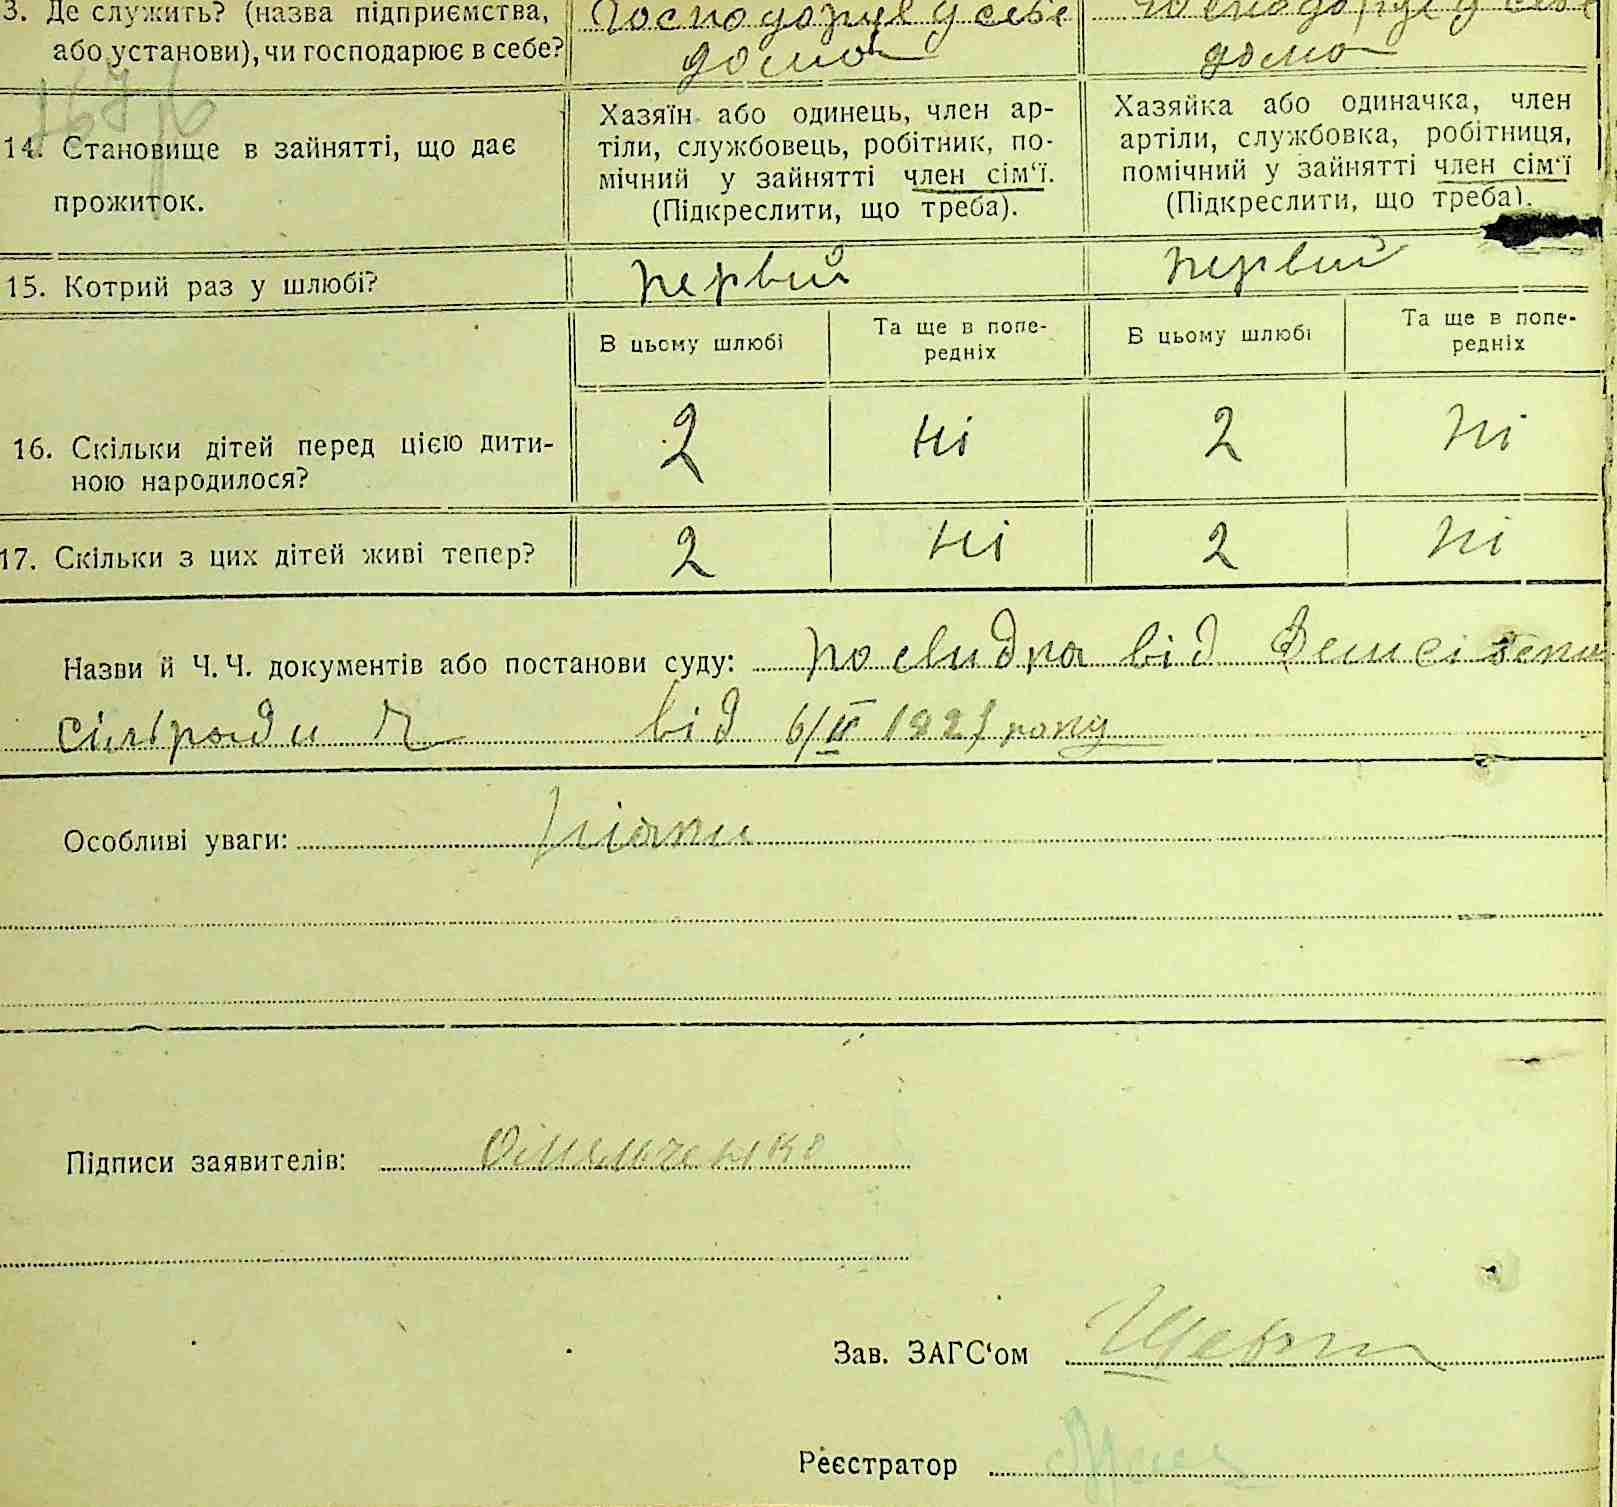 3. Де служить? (назва підприємства, Господарує у себе Господарує у себе
або установи), чи господарює в себе? дома дома
14. Становище в зайнятті, що дає прожиток.
Хазяїн або одинець, член ар-
тіли, службовець, робітник, по-
мічний у зайнятті член сім‘ї.
(Підкреслити, що треба).
Хазяйка або одиначка, член
артіли, службовка, робітниця,
помічний у зайнятті член сім‘ї
(Підкреслити, що треба).
15. Котрий раз у шлюбі? первий первий
В цьому шлюбі Та ще в попе- В цьому шлюбі Та ще в попе-
редніх редніх
16. Скільки дітей перед цією дити- 2 ні 2 ні
ною народилося?
17. Скільки з цих дітей живі тепер? 2 ні 2 ні
Назви й Ч. Ч. документів або постанови суду: від
сільради від 6/II
Особливі уваги:
Підписи заявителів: Омельченко
Зав. ЗАГС‘ом
Реєстратор